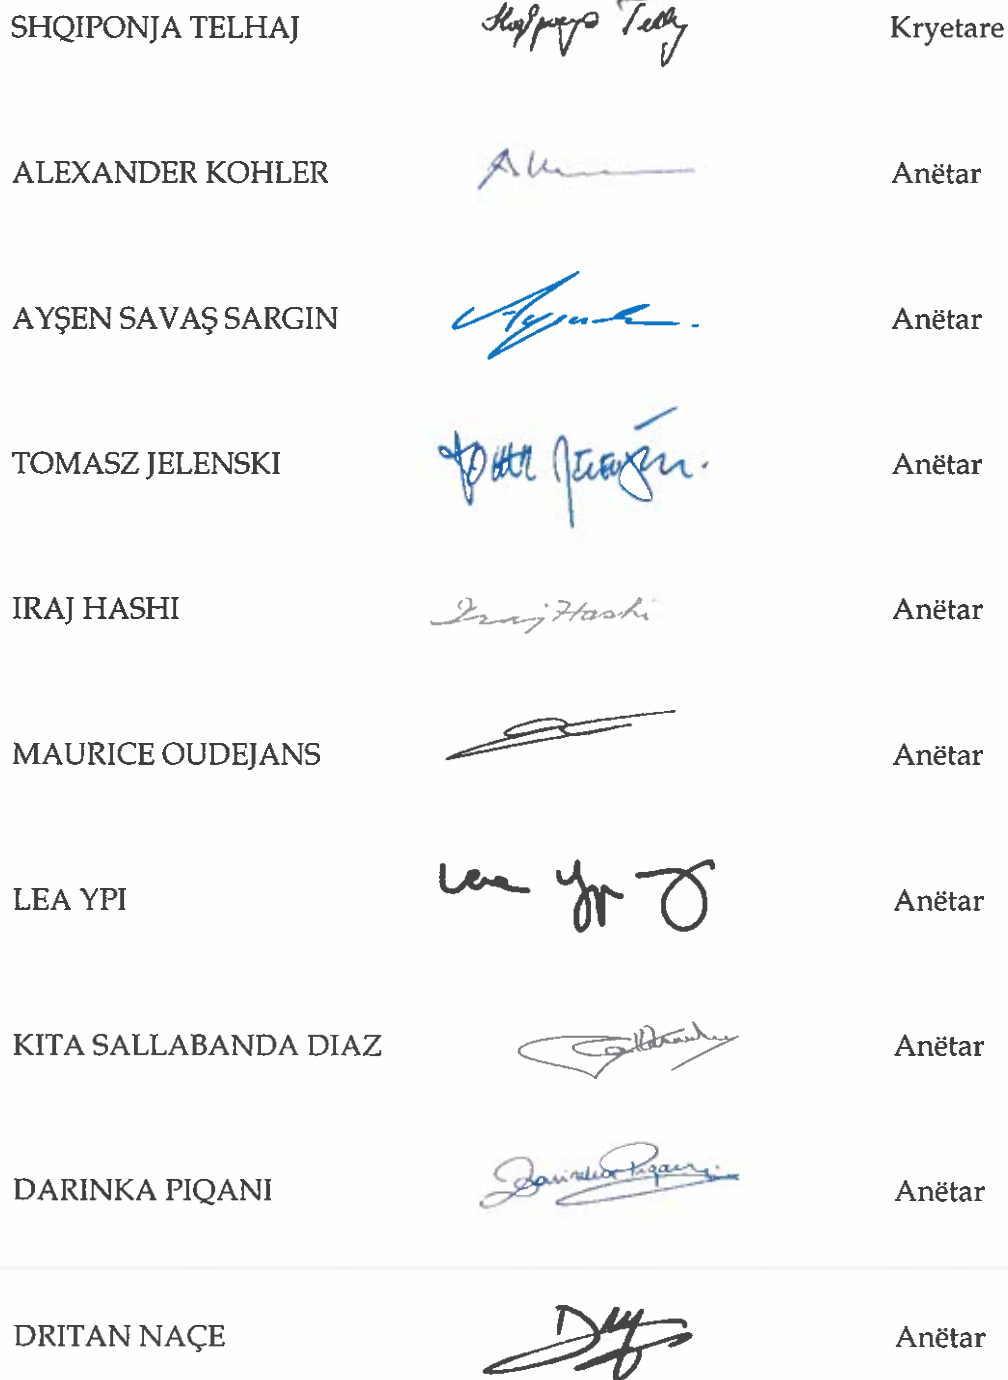 SHQIPONJA TELHAJ Kryetare
ALEXANDER KOHLER Anëtar
AYŞEN SAVAŞ SARGIN Anëtar
TOMASZ JELENSKI Anëtar
IRAJ HASHI Iraj Hashi Anëtar
MAURICE OUDEJANS Anëtar
LEA YPI Lea Ypi Anëtar
KITA SALLABANDA DIAZ Anëtar
DARINKA PIQANI Darinka Piqani Anëtar
DRITAN NAÇE Anëtar